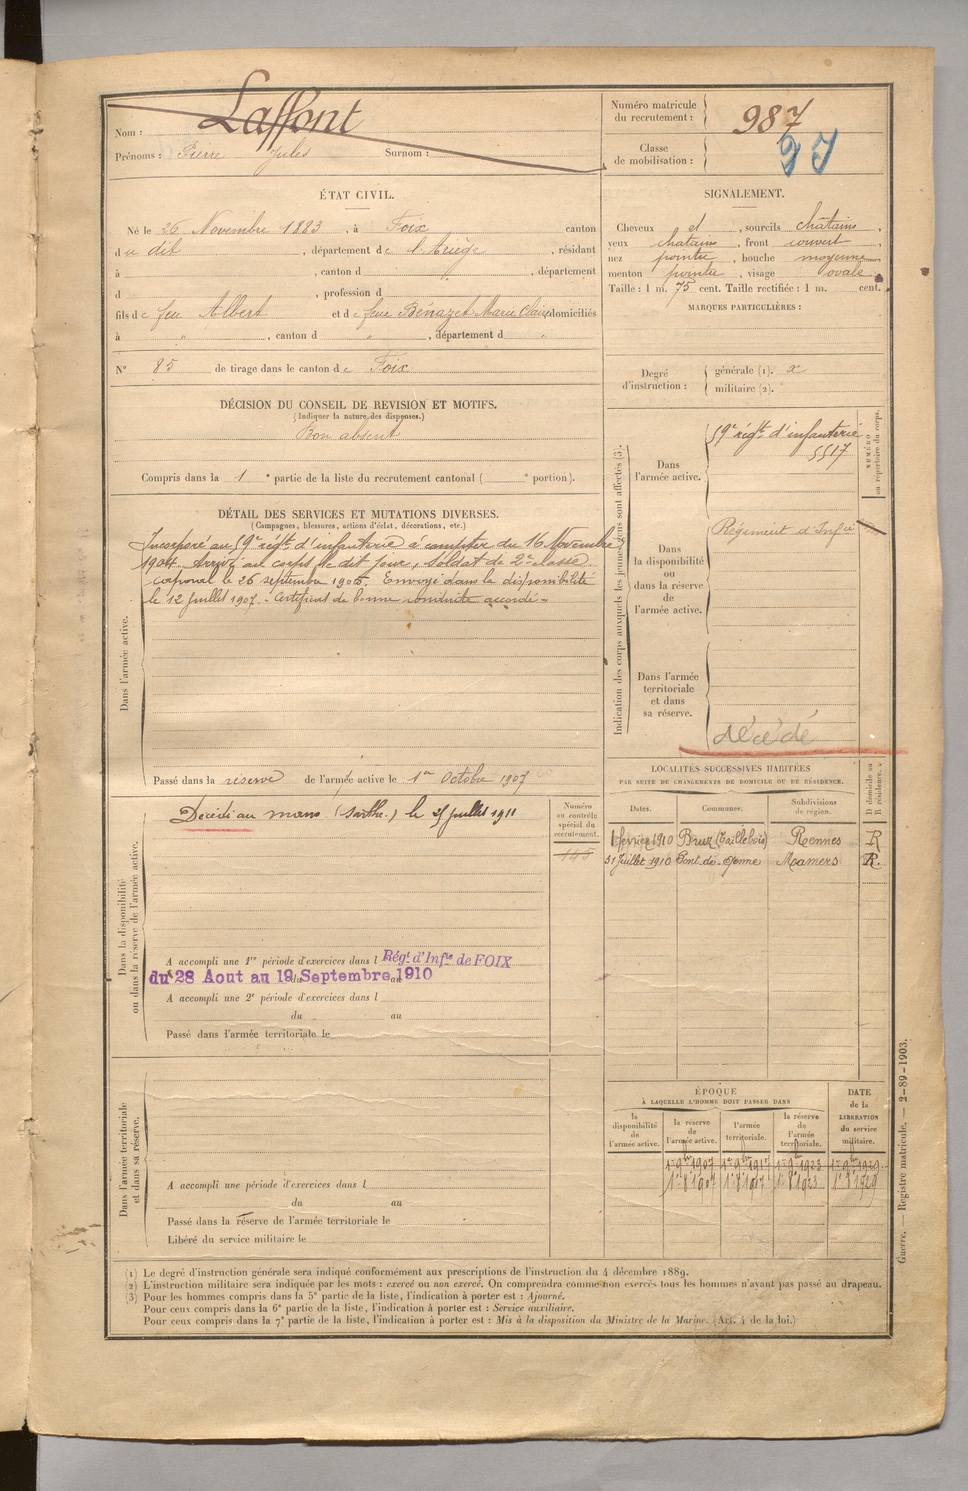 Nom : Laffont
Prénoms : Pierre Jules Surnom :
Numéro matricule du recrutement : 987
Classe de mobilisation :
ÉTAT CIVIL.
Né le 26 Novembre 1883, à Foix canton
du dit, département de l'Ariège, résidant
à , canton d , département
d , profession d
fils de feu Albert et de feue Bénazet Marie Claire, domiciliés
à " , canton d " , département d "
N° 85 de tirage dans le canton de Foix
SIGNALEMENT.
Cheveux et , sourcils châtains ,
yeux chatains , front couvert ,
nez pointu , bouche moyenne ,
menton pointu , visage ovale
Taille : 1 m. 75 cent. Taille rectifiée : 1 m. cent.
MARQUES PARTICULIÈRES :
Degré d'instruction :
générale (1). x
militaire (2).
DÉCISION DU CONSEIL DE REVISION ET MOTIFS.
(Indiquer la nature des dispenses.)
Bon absent
Compris dans la 1e partie de la liste du recrutement cantonal ( e portion).
DÉTAIL DES SERVICES ET MUTATIONS DIVERSES.
(Campagnes, blessures, actions d'éclat, décorations, etc.)
Dans l'armée active.
Incorporé au 59e régt. d'infanterie à compter du 16 Novembre
1904. Arrivé au corps le dit jour, soldat de 2e classe.
caporal le 26 septembre 1905. Envoyé dans la disponibilité
le 12 Juillet 1907. Certificat de bonne conduite accordé
Passé dans la réserve de l'armée active le 1er Octobre 1907
Indication des corps auxquels les jeunes gens sont affectés (3).
NUMÉRO au répertoire du corps.
Dans l'armée active.
59e régt. d'infanterie
5517
Dans la disponibilité ou dans la réserve de l'armée active.
Régiment d'Infie
Dans l'armée territoriale et dans sa réserve.
décédé
Dans la disponibilité ou dans la réserve de l'armée active.
Décédé au mans (Sarthe.) le Juillet 1911
Numéro au contrôle spécial du recrutement.
145
A accompli une 1re période d'exercices dans l Régt. d'Infie de FOIX
du 28 Aout au 19 Septembre 1910
A accompli une 2e période d'exercices dans l
du au
Passé dans l'armée territoriale le
LOCALITÉS SUCCESSIVES HABITÉES
PAR SUITE DE CHANGEMENTS DE DOMICILE OU DE RÉSIDENCE.
D domicile ou R résidence.
Dates. Communes. Subdivisions de région.
1 février 1910 Bruz (Taillebois) Rennes R
31 Juillet 1910 Pont-de-Genne Mamers R.
Dans l'armée territoriale et dans sa réserve.
A accompli une période d'exercices dans l
du au
Passé dans la réserve de l'armée territoriale le
Libéré du service militaire le
ÉPOQUE
À LAQUELLE L'HOMME DOIT PASSER DANS
DATE de la LIBÉRATION du service militaire.
la disponibilité de l'armée active.
la réserve de l'armée active.
l'armée territoriale.
la réserve de l'armée territoriale.
1er 9bre 1907 1er 9bre 1917 1er 9bre 1923 1er 9bre 1929
(1) Le degré d'instruction générale sera indiqué conformément aux prescriptions de l'instruction du 4 décembre 1889.
(2) L'instruction militaire sera indiquée par les mots : exercé ou non exercé. On comprendra comme non exercés tous les hommes n'ayant pas passé au drapeau.
(3) Pour les hommes compris dans la 5e partie de la liste, l'indication à porter est : Ajourné.
Pour ceux compris dans la 6e partie de la liste, l'indication à porter est : Service auxiliaire.
Pour ceux compris dans la 7e partie de la liste, l'indication à porter est : Mis à la disposition du Ministre de la Marine. (Art. 4 de la loi.)
Guerre. — Registre matricule. — 2-89-1903.